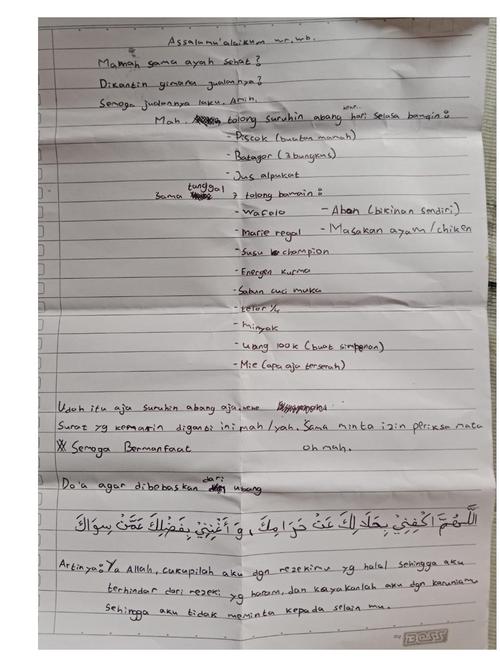 Assalamu'alaikum wr.wb.
Mamah sama ayah sehat?
Dikantin gimana jualannya?
Semoga jualannya laku. Amin.
Mah, tolong suruhin abang hari selasa bawain:
- Piscok (buatan mamah)
- Batagor (3 bungkus)
- Jus alpukat
Sama tanggal 7 tolong bawain:
- Wafelo - Abon (bikinan sendiri)
- Marie regal - Masakan ayam/chiken
- Susu champion
- Energen kurma
- Sabun cuci muka
- telor 1/4
- minyak
- Uang 100k (buat simpenan)
- Mie (apa aja terserah)
Udah itu aja suruhin abang aja.hehe
Surat yg kemarin diganti ini mah/yah. Sama minta izin periksa mata
※ Semoga Bermanfaat oh mah.
Do'a agar dibebaskan dari utang
اَللّٰهُمَّ اكْفِنِيْ بِحَلَالِكَ عَنْ حَرَامِكَ، وَ أَغْنِنِيْ بِفَضْلِكَ عَمَّنْ سِوَاكَ
Artinya: Ya Allah, cukupilah aku dgn rezekimu yg halal sehingga aku
terhindar dari rezeki yg haram, dan kayakanlah aku dgn karuniamu
sehingga aku tidak meminta kepada selain mu.
BOSS